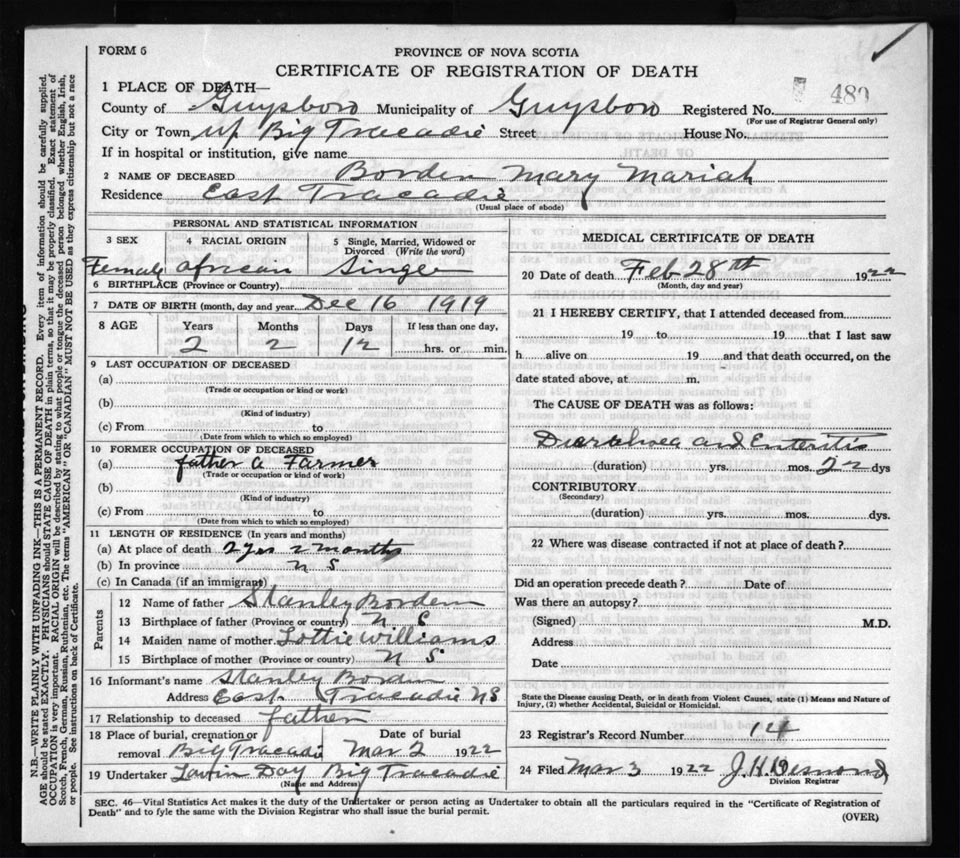 FORM 6
PROVINCE OF NOVA SCOTIA
CERTIFICATE OF REGISTRATION OF DEATH
1 PLACE OF DEATH—
County of Guysboro Municipality of Guysboro Registered No. 480
(For use of Registrar General only)
City or Town up Big Tracadie Street House No.
If in hospital or institution, give name
2 NAME OF DECEASED Borden Mary Mariah
Residence East Tracadie
(Usual place of abode)
PERSONAL AND STATISTICAL INFORMATION
3 SEX 4 RACIAL ORIGIN 5 Single, Married, Widowed or Divorced (Write the word)
Female African Single
6 BIRTHPLACE (Province or Country)
7 DATE OF BIRTH (month, day and year) Dec 16 1919
8 AGE Years Months Days If less than one day,
2 2 12 hrs. or min.
9 LAST OCCUPATION OF DECEASED
(a)
(Trade or occupation or kind or work)
(b)
(Kind of industry)
(c) From to
(Date from which to which so employed)
10 FORMER OCCUPATION OF DECEASED
(a) father a Farmer
(Trade or occupation or kind of work)
(b)
(Kind of industry)
(c) From to
(Date from which to which so employed)
11 LENGTH OF RESIDENCE (In years and months)
(a) At place of death 2 yrs 2 months
(b) In province N S
(c) In Canada (if an immigrant)
Parents
12 Name of father Stanley Borden
13 Birthplace of father (Province or country) N. S
14 Maiden name of mother Lottie Williams
15 Birthplace of mother (Province or country) N S
16 Informant's name Stanley Borden
Address East Tracadie NS
17 Relationship to deceased father
18 Place of burial, cremation or removal Date of burial
Big Tracadie Mar 2 1922
19 Undertaker Day Big Tracadie
(Name and Address)
MEDICAL CERTIFICATE OF DEATH
20 Date of death Feb 28th 1922
(Month, day and year)
21 I HEREBY CERTIFY, that I attended deceased from
19 to 19 that I last saw
h alive on 19 and that death occurred, on the
date stated above, at m.
The CAUSE OF DEATH was as follows:
Diarrhoea and Enteritis
(duration) yrs. mos. 22 dys
CONTRIBUTORY
(Secondary)
(duration) yrs. mos. dys.
22 Where was disease contracted if not at place of death?
Did an operation precede death? Date of
Was there an autopsy?
(Signed) M.D.
Address
Date
State the Disease causing Death, or in death from Violent Causes, state (1) Means and Nature of
Injury, (2) whether Accidental, Suicidal or Homicidal.
23 Registrar's Record Number 14
24 Filed Mar 3 1922 J. H. Desmond
Division Registrar
SEC. 46—Vital Statistics Act makes it the duty of the Undertaker or person acting as Undertaker to obtain all the particulars required in the "Certificate of Registration of
Death" and to fyle the same with the Division Registrar who shall issue the burial permit.
(OVER)
N.B.—WRITE PLAINLY WITH UNFADING INK—THIS IS A PERMANENT RECORD. Every item of information should be carefully supplied.
AGE should be stated EXACTLY. PHYSICIANS should STATE CAUSE OF DEATH in plain terms, so that it may be properly classified. Exact statement of
OCCUPATION is very important. RACIAL ORIGIN will be described by stating to what people or tongue the deceased person belonged whether English, Irish,
Scotch, French, German, Russian, Ruthenian, etc. The terms "AMERICAN" or "CANADIAN" MUST NOT BE USED as they express citizenship but not a race
or people. See instructions on back of Certificate.